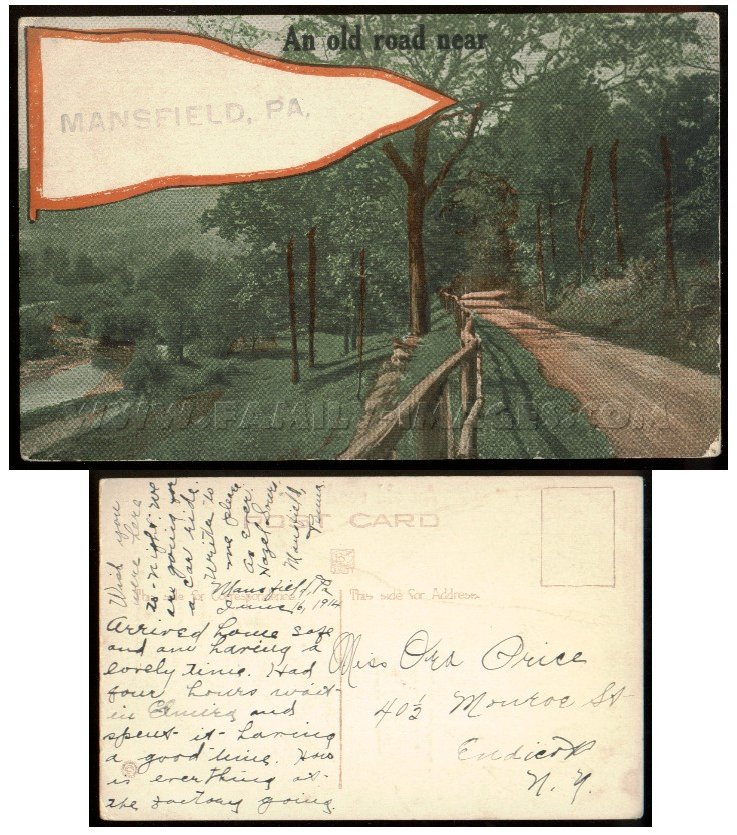 An old road near
MANSFIELD, PA.
WWW.FAMILYIMAGES.COM
POST CARD
This side for Correspondence.
This side for Address.
Mansfield, Pa
June 16, 1914
Arrived home safe
and am having a
lovely time. Had
four hours wait
in Elmira and
spent it having
a good time. How
is everthing at
the factory going.
Wish you
were here
to-night. We
are going for
a car ride.
Write to
me please
as ever
Hazel
Mansfield,
Penna
Miss Ora Price
40½ Monroe St
Endicott
N. Y.